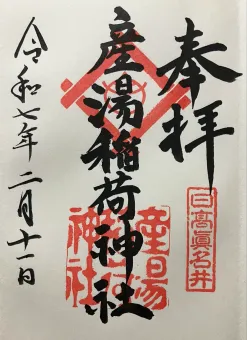 奉拝
日高眞名井
産湯稲荷神社
産湯
稲荷
神社
令和七年二月十一日